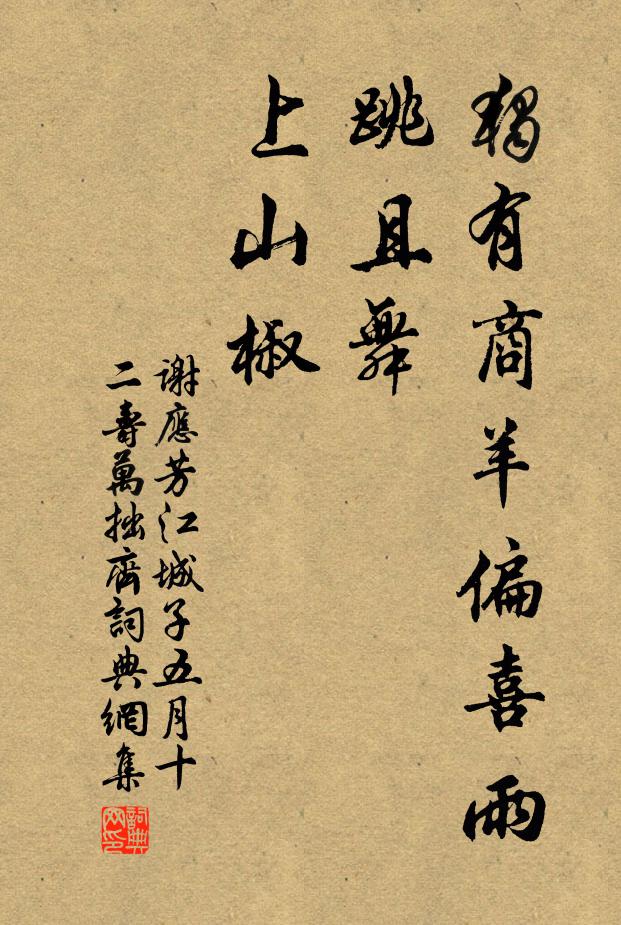 獨有商羊偏喜雨
跳且舞
上山椒
謝應芳江城子五月十
二壽萬拙齋詞典網集
詞典
网印